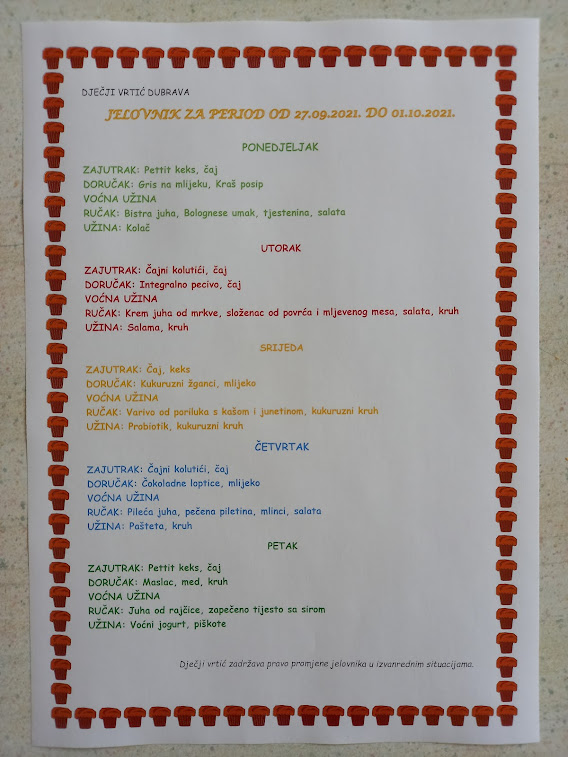 DJEČJI VRTIĆ DUBRAVA
JELOVNIK ZA PERIOD OD 27.09.2021. DO 01.10.2021.
PONEDJELJAK
ZAJUTRAK: Pettit keks, čaj
DORUČAK: Gris na mlijeku, Kraš posip
VOĆNA UŽINA
RUČAK: Bistra juha, Bolognese umak, tjestenina, salata
UŽINA: Kolač
UTORAK
ZAJUTRAK: Čajni kolutići, čaj
DORUČAK: Integralno pecivo, čaj
VOĆNA UŽINA
RUČAK: Krem juha od mrkve, složenac od povrća i mljevenog mesa, salata, kruh
UŽINA: Salama, kruh
SRIJEDA
ZAJUTRAK: Čaj, keks
DORUČAK: Kukuruzni žganci, mlijeko
VOĆNA UŽINA
RUČAK: Varivo od poriluka s kašom i junetinom, kukuruzni kruh
UŽINA: Probiotik, kukuruzni kruh
ČETVRTAK
ZAJUTRAK: Čajni kolutići, čaj
DORUČAK: Čokoladne loptice, mlijeko
VOĆNA UŽINA
RUČAK: Pileća juha, pečena piletina, mlinci, salata
UŽINA: Pašteta, kruh
PETAK
ZAJUTRAK: Pettit keks, čaj
DORUČAK: Maslac, med, kruh
VOĆNA UŽINA
RUČAK: Juha od rajčice, zapečeno tijesto sa sirom
UŽINA: Voćni jogurt, piškote
Dječji vrtić zadržava pravo promjene jelovnika u izvanrednim situacijama.